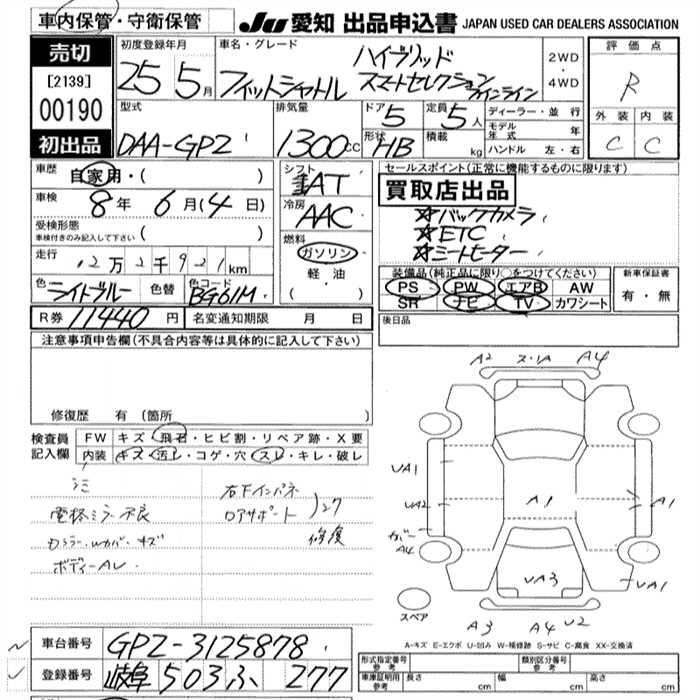 車内保管・守衛保管
JU 愛知 出品申込書 JAPAN USED CAR DEALERS ASSOCIATION
売切
[2139]
00190
初出品
初度登録年月
25 5月
車名・グレード
ハイブリッド
フィットシャトル スマートセレクション
ファインライン
2WD
・
4WD
評価点
R
外装 内装
C C
型式
DAA-GP2
排気量
1300cc
ドア 5
形状 HB
定員 5人
積載 kg
ディーラー・並行
モデル年式 年
ハンドル 左・右
車歴 自家用・( )
車検 8年 6月(4日)
受検形態
車検付きのみ記入して下さい ( )
走行 12万2千921km
色 ライトブルー 色替 色コード BG61M
R券 11440円 名変通知期限 月 日
シフト AT
冷房 AAC
燃料
ガソリン
軽油
( ・ )
セールスポイント(正常に機能するものに限ります)
買取店出品
☆バックカメラ
☆ETC
☆シートヒーター
装備品(純正品に限り○をつけてください)
PS PW エアB AW
SR ナビ TV カワシート
新車保証書
有・無
後日品
注意事項申告欄(不具合内容等は具体的に記入して下さい)
修復歴 有(箇所
検査員記入欄
FW キズ・飛石・ヒビ割・リペア跡・X要
内装 キズ・汚レ・コゲ・穴・スレ・キレ・破レ
電格ミラー不良
ドラミラーWカバーキズ
ボディーAU
右下インパネ
ロアサポート
修復
A2 ス・リA A4
UA1
UA2
カバーA4
A1
A1
UA3
UA1
A3 A4 U2
スペア
A-キズ E-エクボ U-凹み W-補修跡 S-サビ C-腐食 XX-交換済
車台番号 GP2-3125878
登録番号 岐阜 503 ふ 277
形式指定番号 参考
類別区分番号 参考
車庫証明用 参考 長さ cm 幅 cm 高さ cm